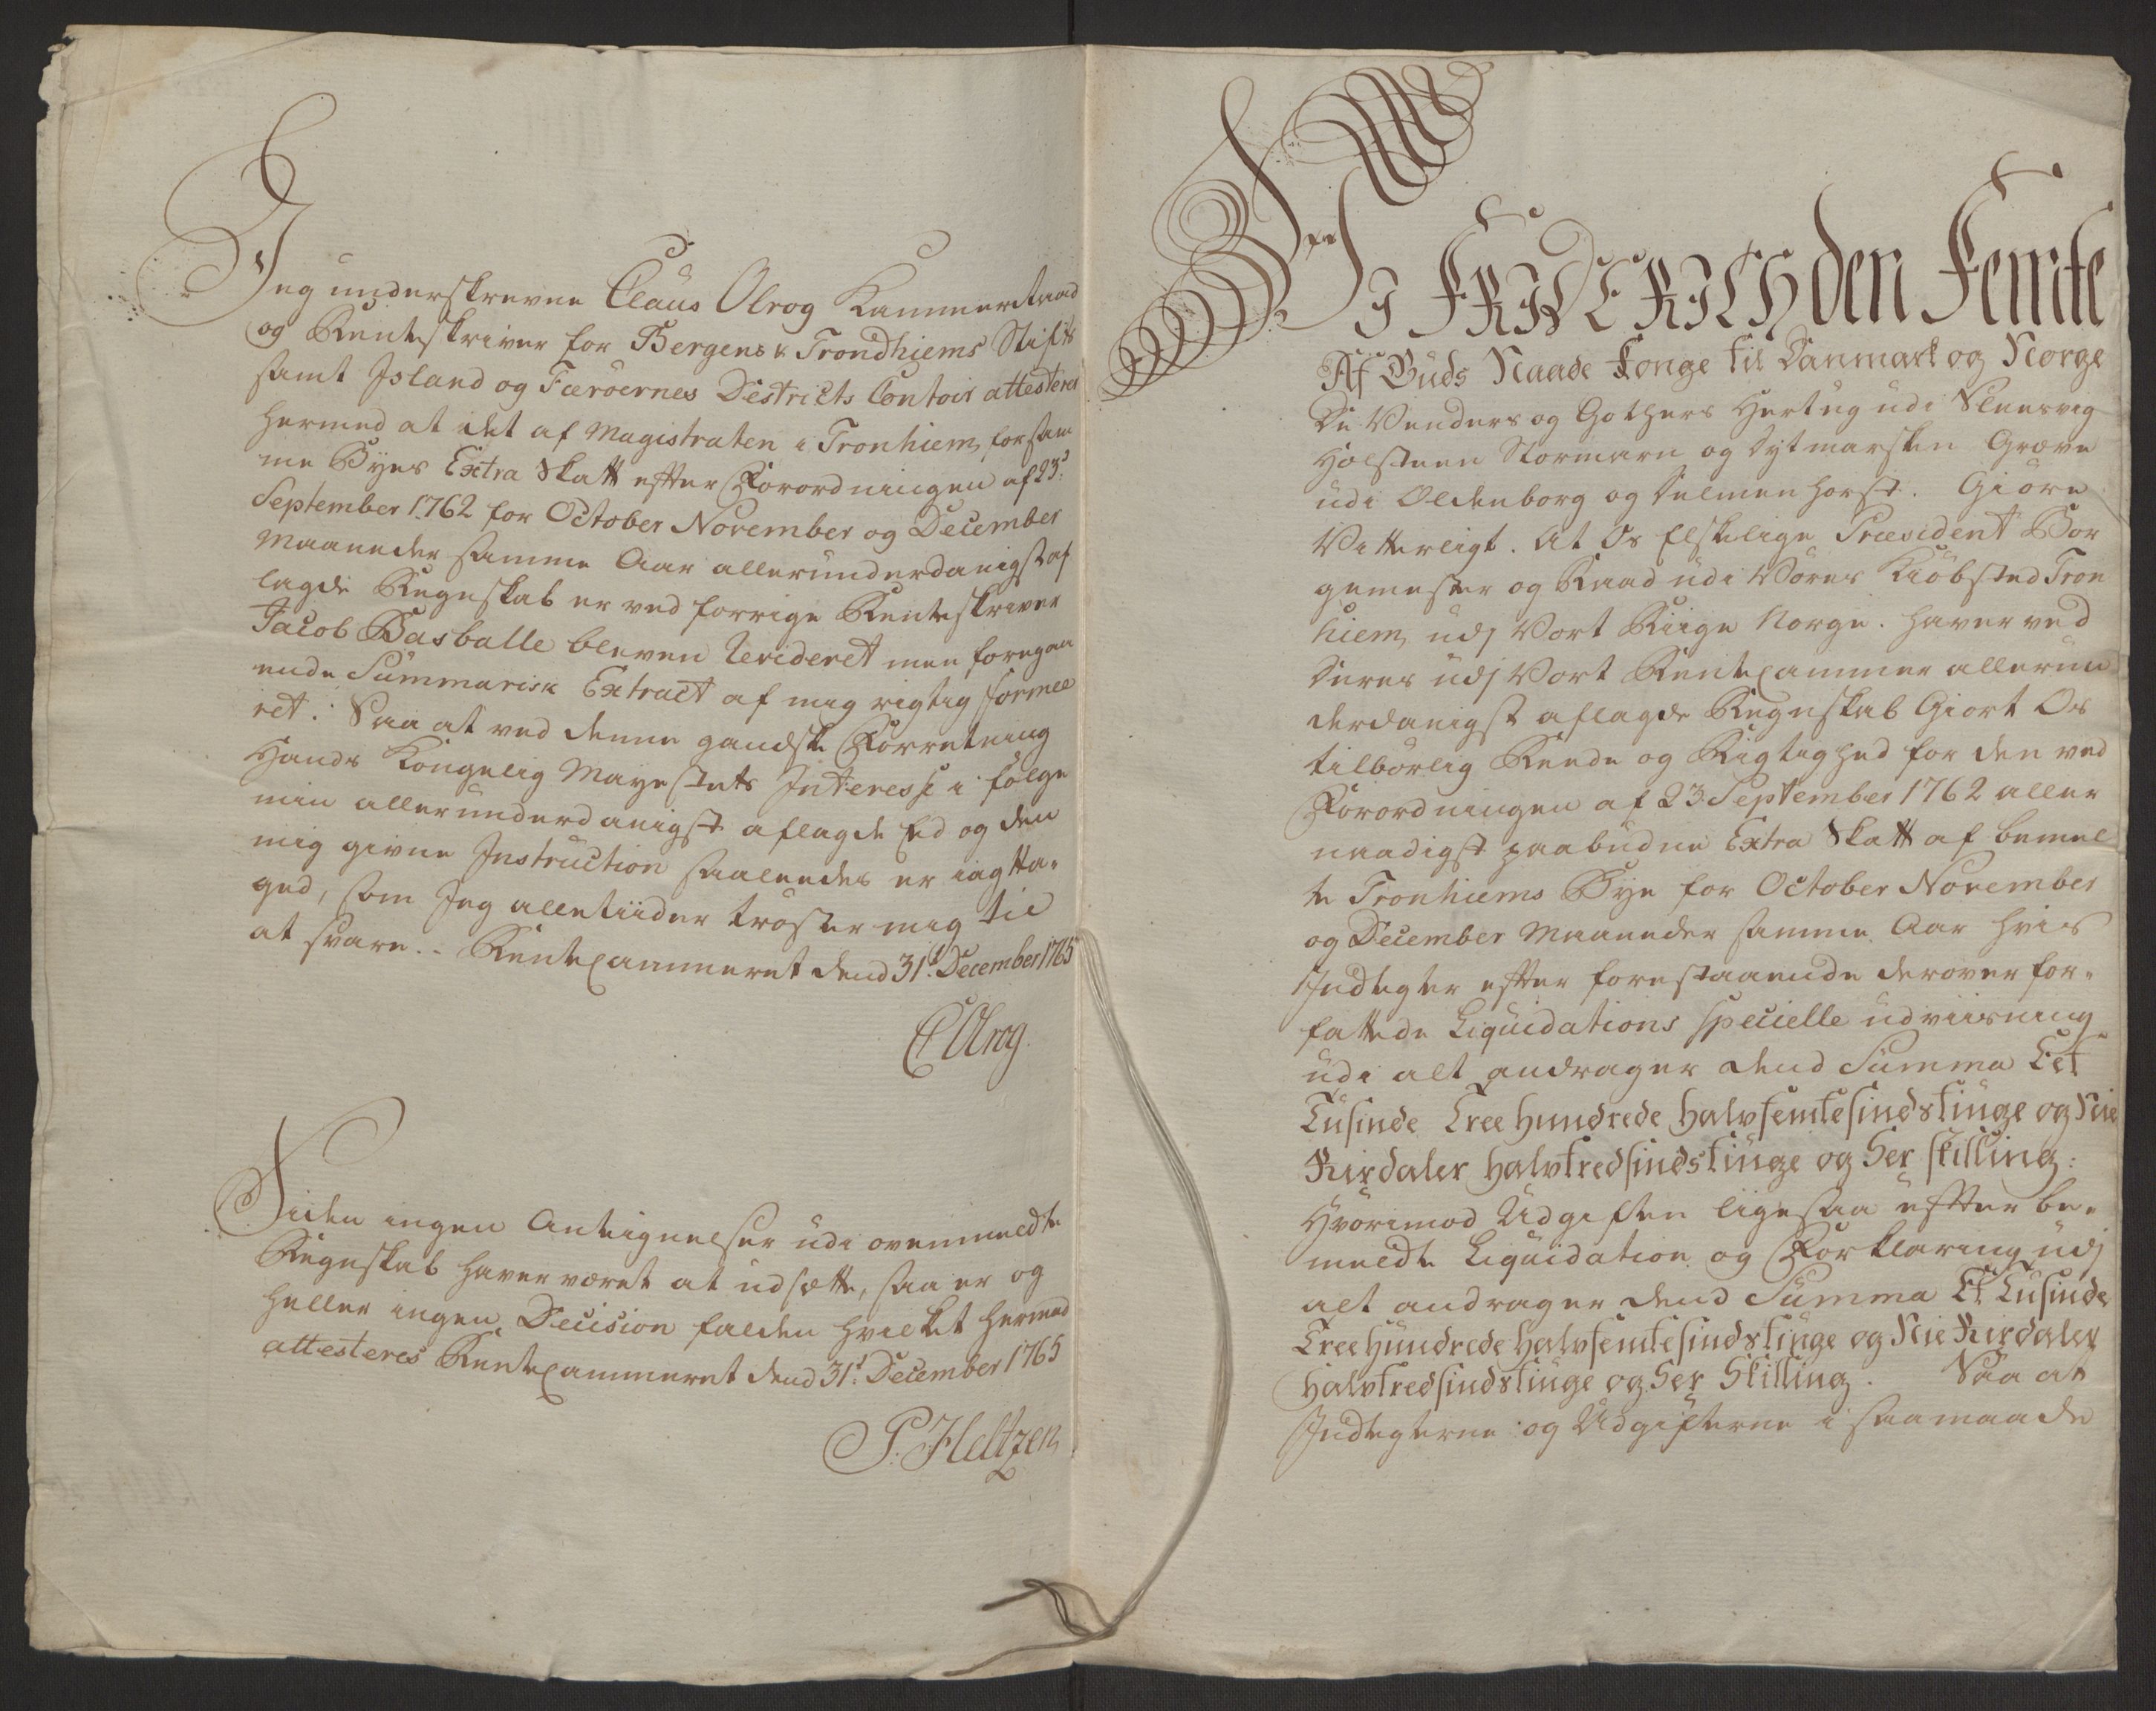 Jeg underskrevne Claus Olrog Kammerraad
og Renteskriver for Bergens & Trondhiems Stifts
samt Jsland og Færöernes Districts Contoir attesterer
hermed at det af Magistraten i Tronhiem for sam
me Byes Extra Skatt efter Forordningen af 23d
September 1762 for October November og December
Maaneder samme Aar allerunderdanigst af
lagde Regnskab er ved forrige Renteskriver
Jacob Basballe bleven Revideret men foregaa
ende Summarisk Extract af mig rigtig formee
ret. Saa at ved denne gandske Forretning
Hands Kongelig Mayestets Jnteresse i følge
min allerunderdanigst aflagde Eed og den
mig givne Jnstruction saaledes er iagtta-
ged, som Jeg alletiider trøster mig til
at svare. - Rentecammeret dend 31t December 1765
C Olrog.
Siden ingen Antegnelser udi ovenmeldte
Regnskab haver været at udsætte, saa er og
heller ingen Decision falden hvilket hermed
attesteres Rentecammeret dend 31t December 1765
P. Heltzen
Vi FRIDERICH den Femte
Af Guds Naade Konge til Danmark og Norge
De Venders og Gothers Hertug udi Slesvig
Holsteen Stormarn og Dytmarsken Greve
udi Oldenborg og Delmenhorst. Giöre
Vitterligt. At Os elskelige Præsident Bor
gemester og Raad udi Vores Kiöbsted Tron
hiem, udj Vort Riige Norge. haver ved
Deres udj Vort Rentecammer allerun
derdanigst aflagde Regnskab Giort Os
tilbørlig Reede og Rigtighed for den ved
Forordningen af 23 September 1762 aller
naadigst paabudne Extra Skatt af bemel
te Tronhiems Bye for October November
og December Maaneder samme Aar hvis
Jndtegter efter forestaaende derover for-
fattede Liquidations specielle udviisning
udi alt andrager dend Summa Eet
Tusinde Tree hundrede halvfemtesindstiuge og Nie
Rixdaler halvtredsindstiuge og Sex skilling:
Hvorimod Udgiften ligesaa efter be-
meldte Liquidation og Forklaring udj
alt andrager dend Summa Et Tusinde
Tree Hundrede halvfemtesindstiuge og Nie Rixdaler
halvtredsindstiuge og Sex Skilling. Saa at
Jndtegterne og Udgifterne i saamaade